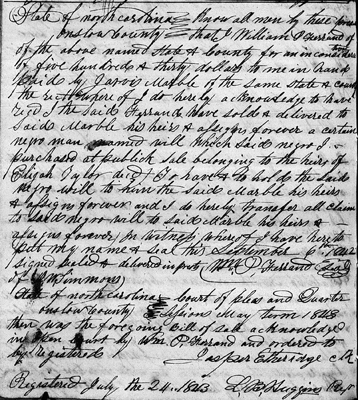 State of north carolina Know all men by these
onslow County That I William P Ferrand
of the above named State & County for an in consider
of five hundred & thirty dollars to me in hand
paid by Jarvis Marble of the same State & county
the rect where of I do hereby acknowledge to have
recd I the said Ferrand have sold & delivered to
Said Marble his heirs & assigns forever a certain
negro man named will which said negro I
purchased at publick sale belonging to the heirs of
Elijah Taylor decd To have & to hold the said
negro will to him the said Marble his heirs
& assigns forever and I do hereby transfer all claim
to said negro will to said Marble his heirs &
assigns forever in witness where of I have here to
put my name & seal this September 6th 1842
signed sealed & delivered in Wm P Ferrand Seal
of Simmons
State of north carolina court of pleas and Quarter
onslow County Sessions May term 1843
then was the foregoing bill of sale acknowledged
in open court by Wm P. Ferrand and ordered to
be registered Jasper Etheridge
Registered July the 24. 1843 Huggins